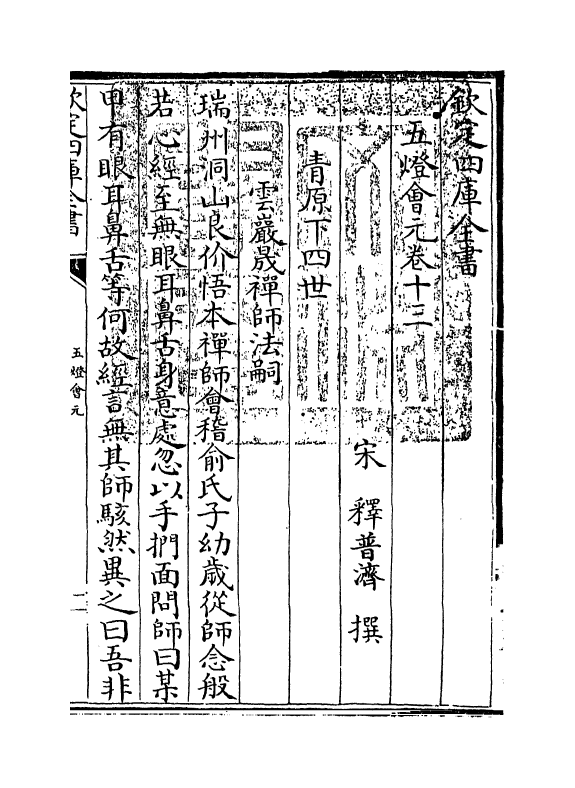 欽定四庫全書
五燈會元卷十三
宋 釋普濟 撰
青原下四世
雲巖晟禪師法嗣
瑞州洞山良价悟本禪師會稽俞氏子幼歲從師念般
若心經至無眼耳鼻舌身意處忽以手捫面問師曰某
甲有眼耳鼻舌等何故經言無其師駭然異之曰吾非
欽定四庫全書
五燈會元